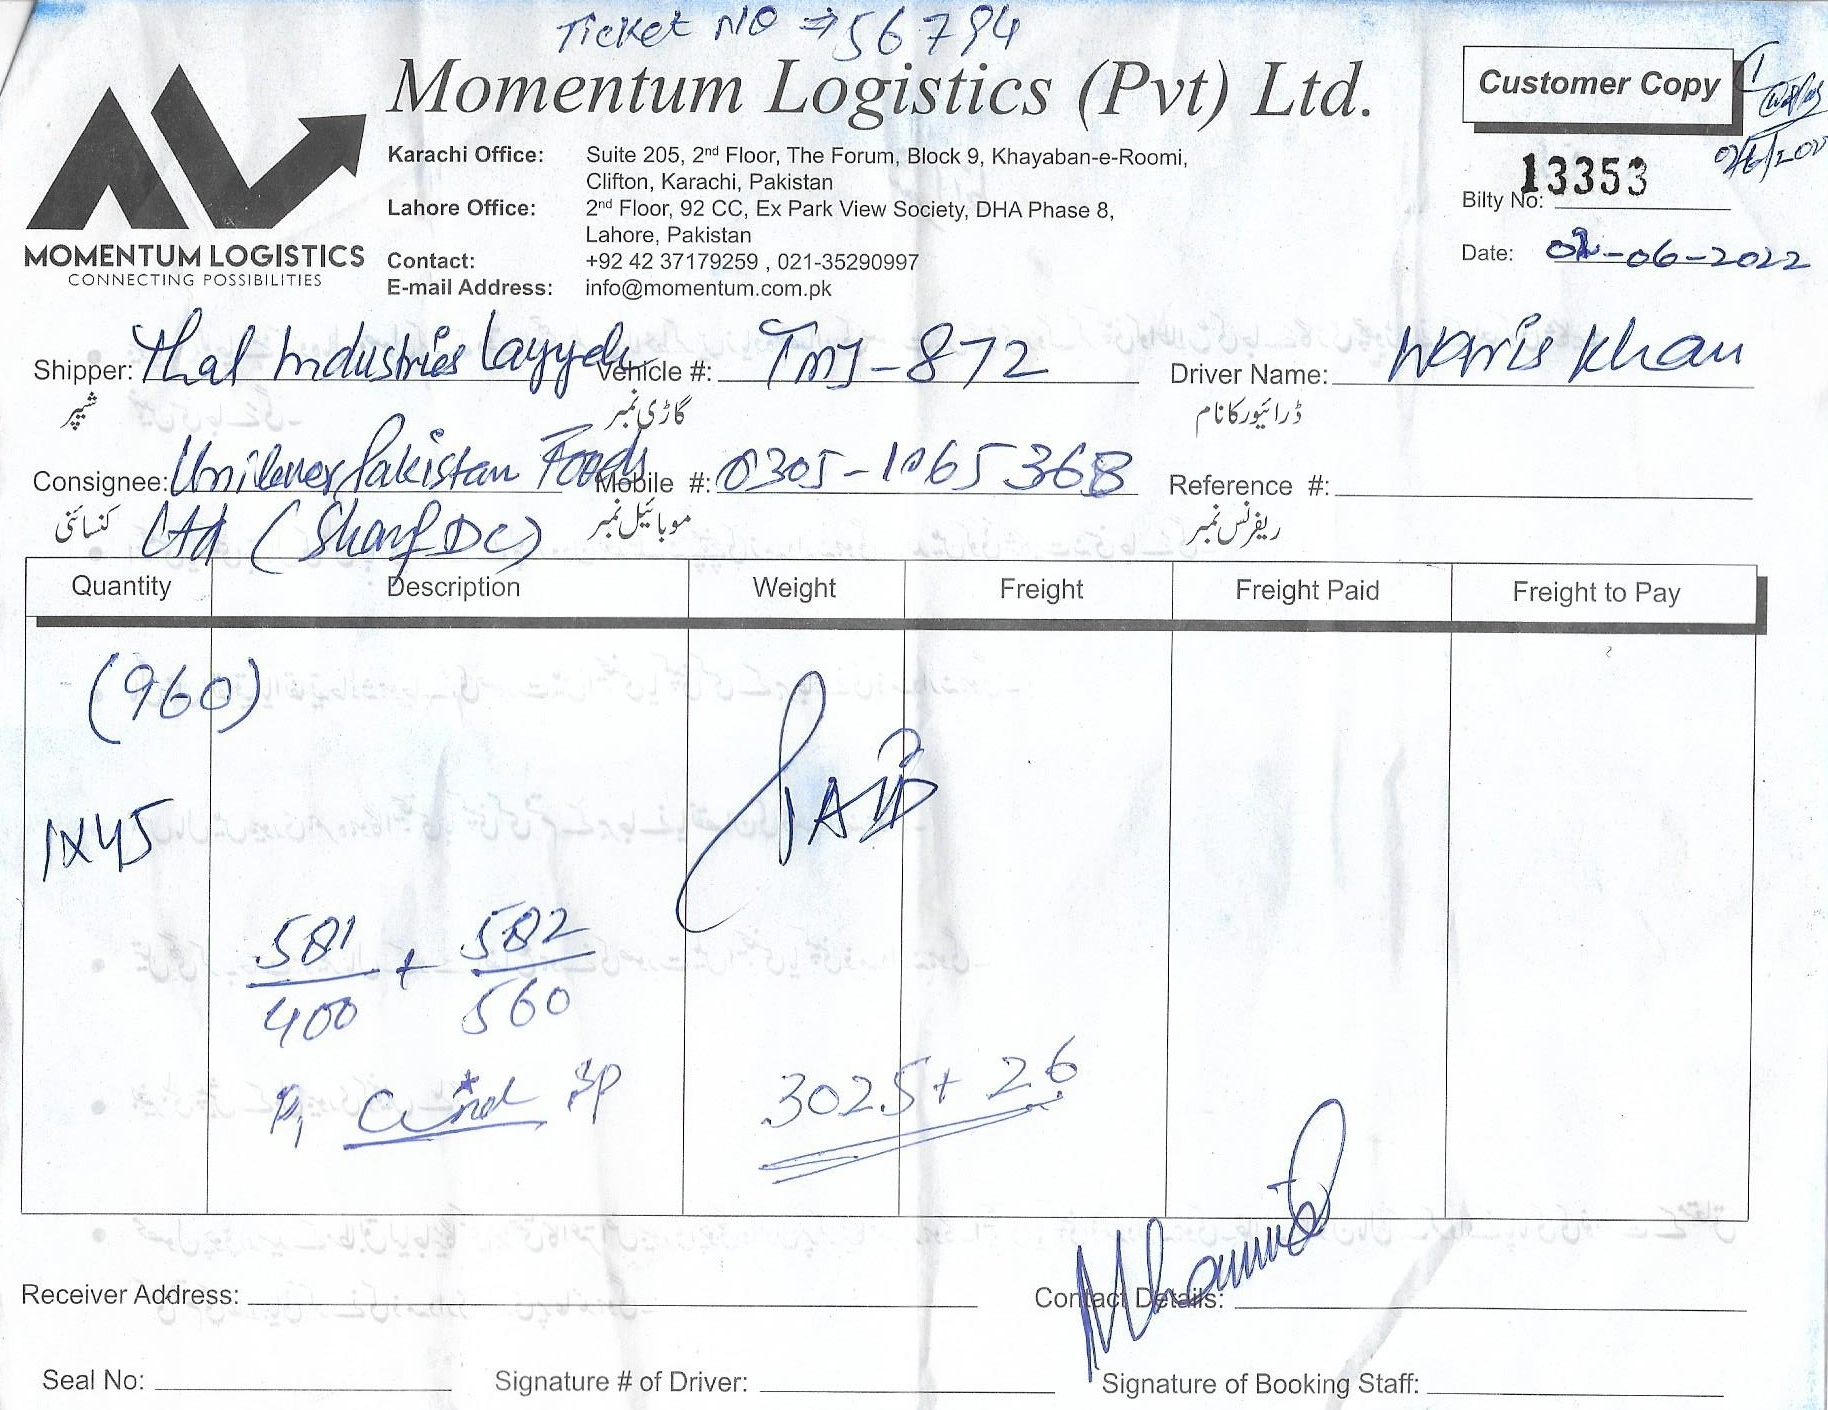 Ticket NO → 56794
Momentum Logistics (Pvt) Ltd.
Customer Copy
MOMENTUM LOGISTICS
CONNECTING POSSIBILITIES
Karachi Office: Suite 205, 2nd Floor, The Forum, Block 9, Khayaban-e-Roomi,
Clifton, Karachi, Pakistan
Lahore Office: 2nd Floor, 92 CC, Ex Park View Society, DHA Phase 8,
Lahore, Pakistan
Contact: +92 42 37179259 , 021-35290997
E-mail Address: info@momentum.com.pk
Bilty No: 13353
Date: 02-06-2022
Shipper: Thal Industries Layyah Vehicle #: TMJ-872 Driver Name: Waris Khan
شپر گاڑی نمبر ڈرائیور کا نام
Consignee: Unilever Pakistan Foods Mobile #: 0305-1065368 Reference #:
کنسائنی Ltd (Sharf DC) موبائیل نمبر ریفرنس نمبر
Quantity Description Weight Freight Freight Paid Freight to Pay
(960)
1X45 PAID
581 + 582
400 560
3025+26
Receiver Address: Contact Details:
Seal No: Signature # of Driver: Signature of Booking Staff: